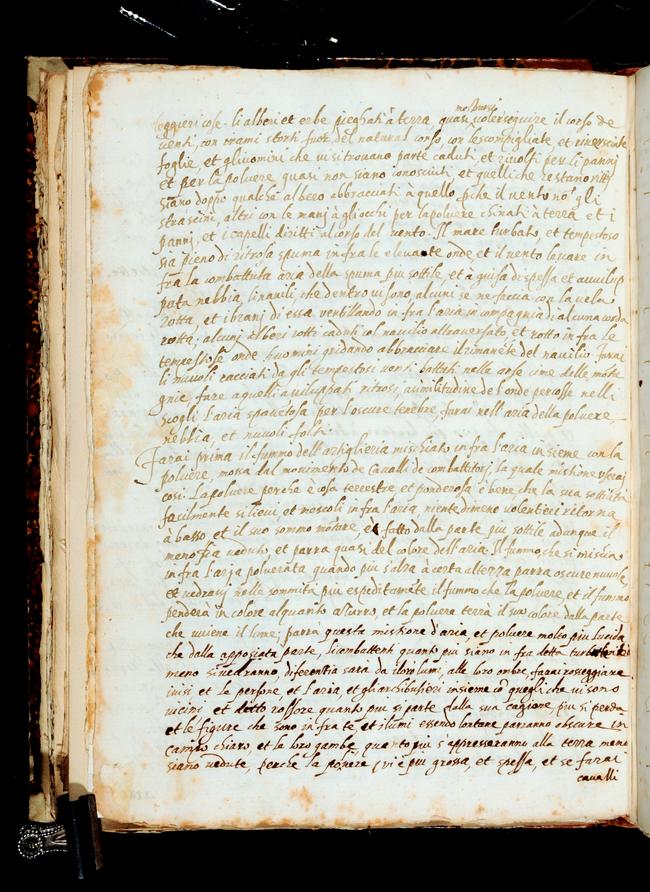 leggieri cose. li alberi et erbe pieghati à terra quasi voler seguire il corso de
mostrarsi
venti, con rami storti fuor del natural corso, con le scompigliate, et rinversciate
foglie, et gl'uomini che vi si trovano parte caduti, et rivolti per li panni
et per la polvere quasi non siano conosciuti, et quelli che restano ritti
siano doppo qualche albero abbracciati à quello pche il vento nō gli
strascini, altri con le mani à gli occhi per la polvere chinati à terra et i
panni, et i capelli diritti al corso del vento. Il mare turbato, et tempestoso
sia pieno di ritrosa spuma in fra le elevate onde, et il vento levare in
fra la combattuta aria della spuma piu sottile, et à guisa di spessa et avvilup
pata nebbia, li navili che dentro vi sono, alcuni se ne faccia con la vela
rotta, et i brani di essa ventillando in fra l'aria in compagnia di alcuna corda
rotta; alcuni alberi rotti caduti col navilio attraversato et rotto in fra le
tempestose onde huomini gridando abbracciare il rimanēte del navilio. farai
li nuvoli cacciati da gli tempestosi venti battuti nelle alte cime delle mōta
gnie fare a quelli aviluppati ritrosi, a similitudine de l'onde percosse nelli
scogli. l'aria spavētosa per l'oscure tenebre, farai nell'aria della polvere,
nebbia, et nuvoli folti.
Farai prima il fummo dell'artiglieria mischiato in fra l'aria insieme con la
polvere, mossa dal movimento de cavalli de combattitori; la quale mistione userai
cosi. La polvere perche è cosa terrestre et ponderosa è bene che la sua sottilità
facilmente si lievi, et mescoli in fra l'aria, nientedimeno volentieri ritorna
à basso, et il suo sommo montare, è fatto dalla parte piu sottile adunque il
meno fia veduto, et parra quasi del colore dell'aria. Il fummo, che si mischia
in fra l'aria polverata quando piu s'alza à certa altezza parra oscure nuvole,
et vedrassi nelle sommità piu espeditamēte il fummo che la polvere, et il fummo
penderà in colore alquanto azurro, et la polvere terrà il suo colore dalla parte
che viene il lume; parrà questa mistione d'aria, et polvere molto piu lucida
che dalla apposiata parte, li combattenti quanto piu siano in fra detta
meno si vedranno, diferentia sarà da i loro lumi, alle loro ombre, farai rosseggiare
i visi et le persone, et l'aria et gli archibusieri insieme cō quegli che vi sono
vicini et detto rossore quanto piu si parte dalla sua cagione, piu si perda
et le figure che sono in fra te, et i lumi essendo lontane parranno obscure in
campo chiaro, et le loro gambe, quanto piu s'appresseranno alla terra meno
siano vedute, perche la polvere qui è piu grossa, et spessa, et se farai
cavalli